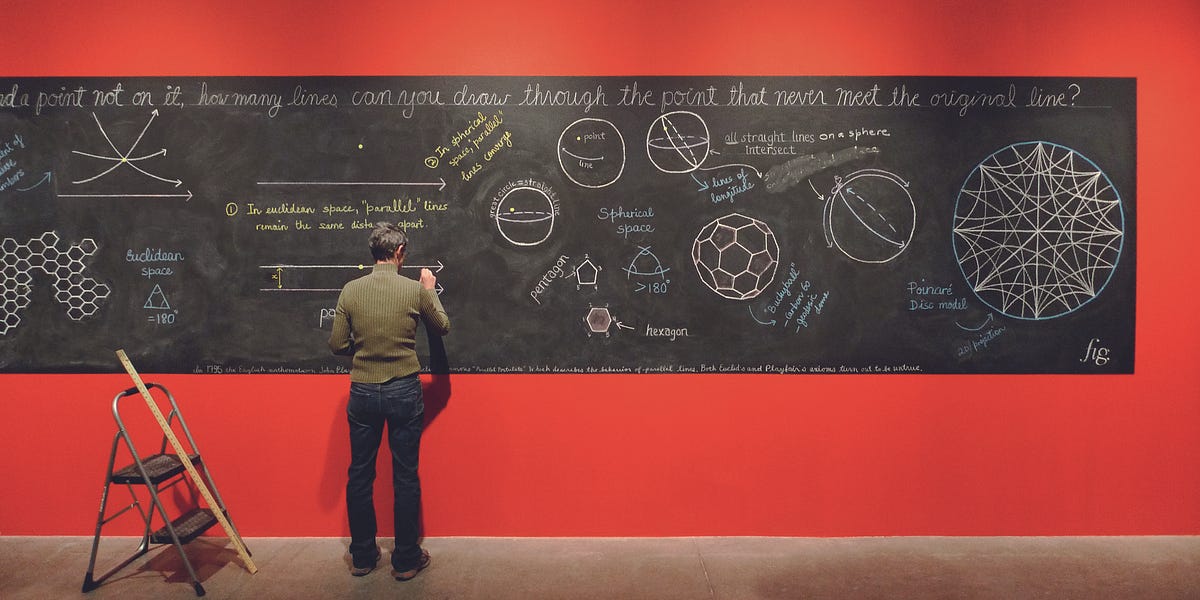 a point not on it, how many lines can you draw through the point that never meet the original line?
② In spherical
space, "parallel"
lines converge
① In euclidean space, "parallel" lines
remain the same dista apart.
Euclidean
space
=180°
great circle = straight line
point
line
all straight lines on a sphere
intersect
lines of
longitude
Spherical
space
>180°
pentagon
hexagon
"Buckyball"
-carbon 60
-geodesic
dome
Poincaré
Disc model
2D projection
fig.
In 1795 the English mathematician John Play "Parallel Postulate" which describes the behavior of parallel lines. Both Euclid's and Playfair's axioms turn out to be untrue.